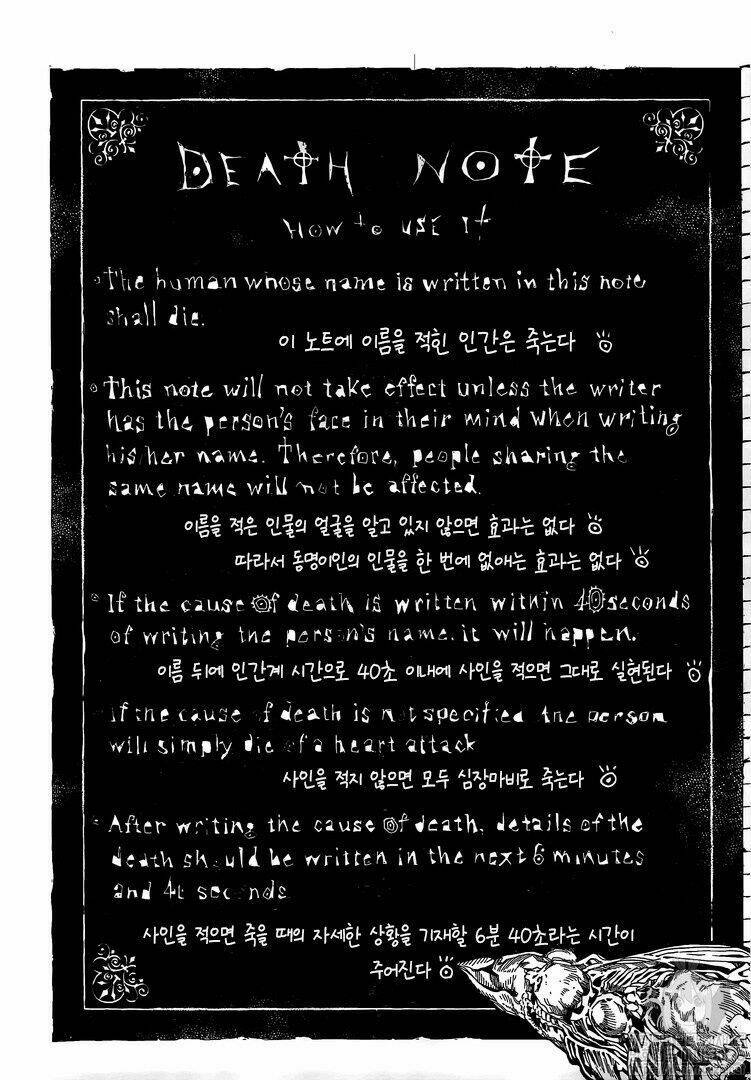 DEATH NOTE
HOW to USE It
The human whose name is written in this note
shall die.
이 노트에 이름을 적힌 인간은 죽는다
This note will not take effect unless the writer
has the person's face in their mind when writing
his her name. Therefore, people sharing the
same name will not be affected.
이름을 적은 인물의 얼굴을 알고 있지 않으면 효과는 없다
따라서 동명이인의 인물을 한 번에 없애는 효과는 없다
If the cause of death is written within 40seconds
of writing the person's name, it will happen.
이름 뒤에 인간계 시간으로 40초 이내에 사인을 적으면 그대로 실현된다
If the cause of death is not specified the person
will simply die of a heart attack
사인을 적지 않으면 모두 심장마비로 죽는다
After writing the cause of death, details of the
death should be written in the next 6 minutes
and 40 seconds
사인을 적으면 죽을 때의 자세한 상황을 기재할 6분 40초라는 시간이
주어진다